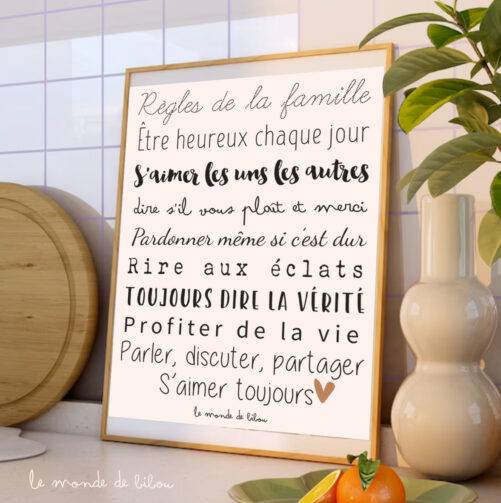 Règles de la famille
Être heureux chaque jour
S'aimer les uns les autres
dire s'il vous plaît et merci
Pardonner même si c'est dur
Rire aux éclats
TOUJOURS DIRE LA VÉRITÉ
Profiter de la vie
Parler, discuter, partager
S'aimer toujours
le monde de bilou
le monde de bilou